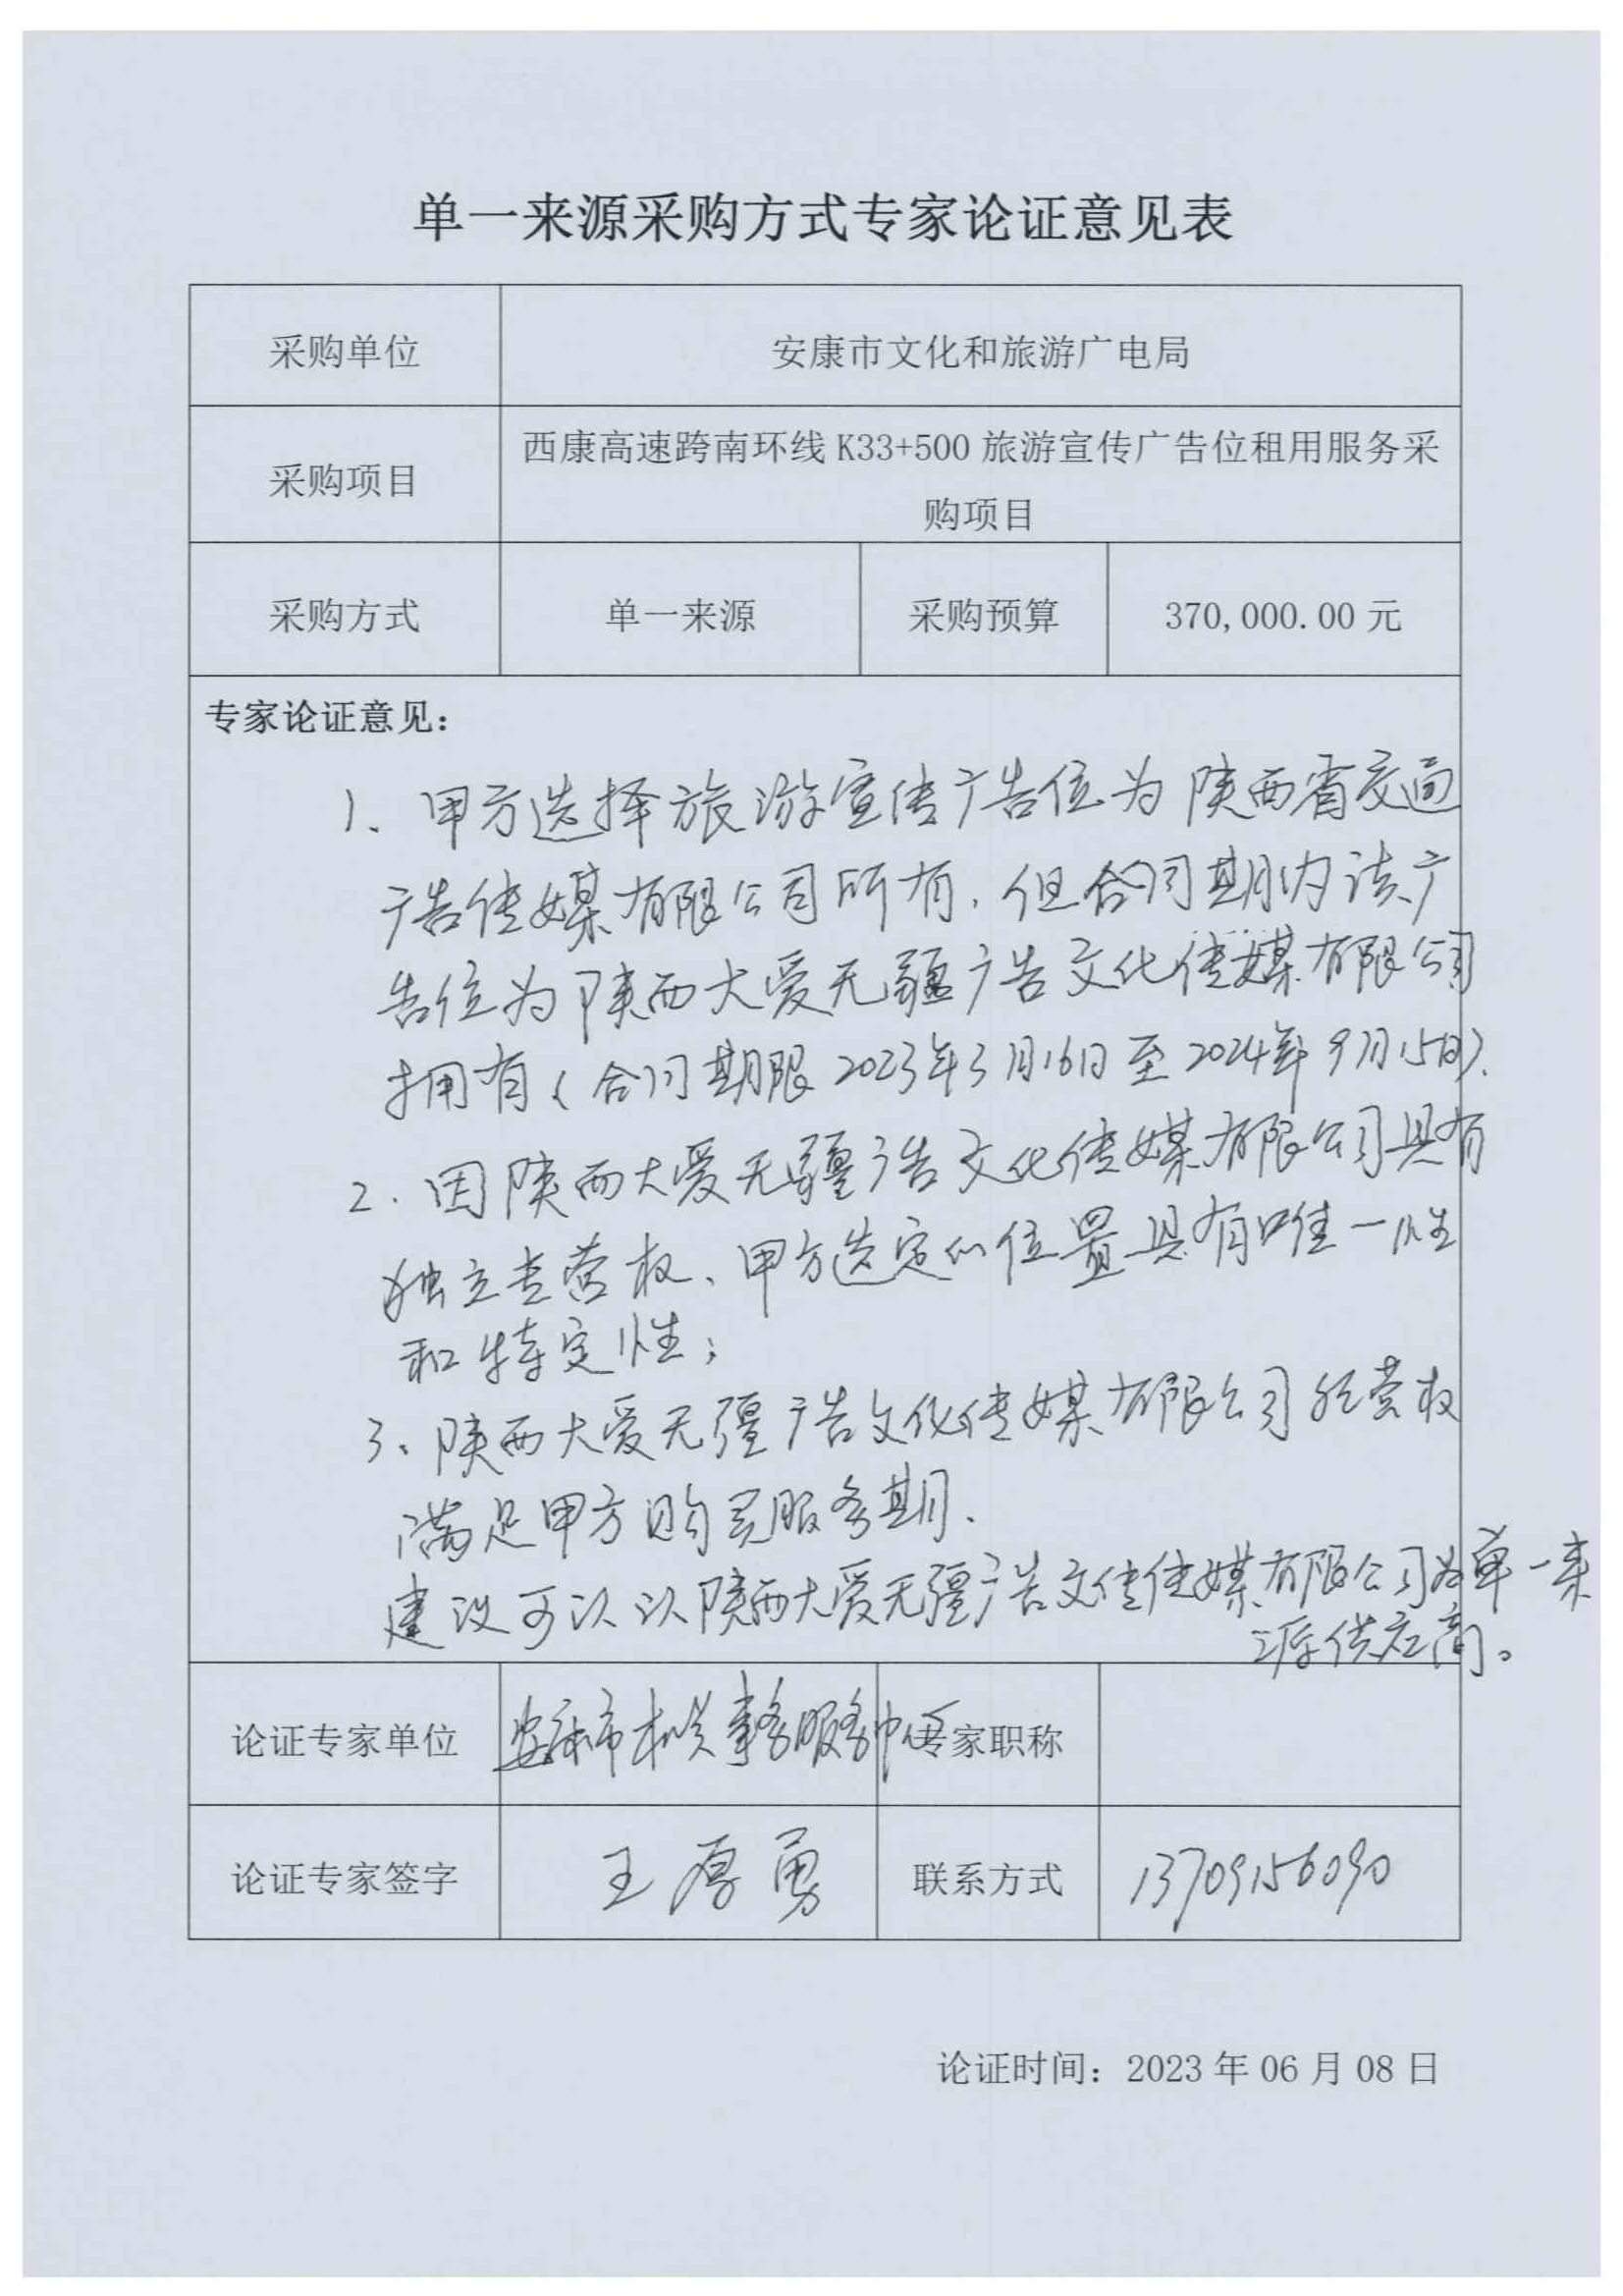 单一来源采购方式专家论证意见表
采购单位 安康市文化和旅游广电局
采购项目 西康高速跨南环线 K33+500 旅游宣传广告位租用服务采
购项目
采购方式 单一来源 采购预算 370,000.00 元
专家论证意见：
1、甲方选择旅游宣传广告位为陕西省交通
广告传媒有限公司所有，但合同期内该广
告位为陕西大爱无疆广告文化传媒有限公司
拥有（合同期限2023年3月16日至2024年9月15日）.
2. 因陕西大爱无疆广告文化传媒有限公司具有
独立专营权、甲方选定的位置具有唯一性
和特定性；
3、陕西大爱无疆广告文化传媒有限公司经营权
满足甲方购买服务期.
建议可以以陕西大爱无疆广告文化传媒有限公司为单一来
源供应商。
论证专家单位 安康市机关事务服务中心 专家职称
论证专家签字 王厚勇 联系方式 13709156090
论证时间：2023 年 06 月 08 日